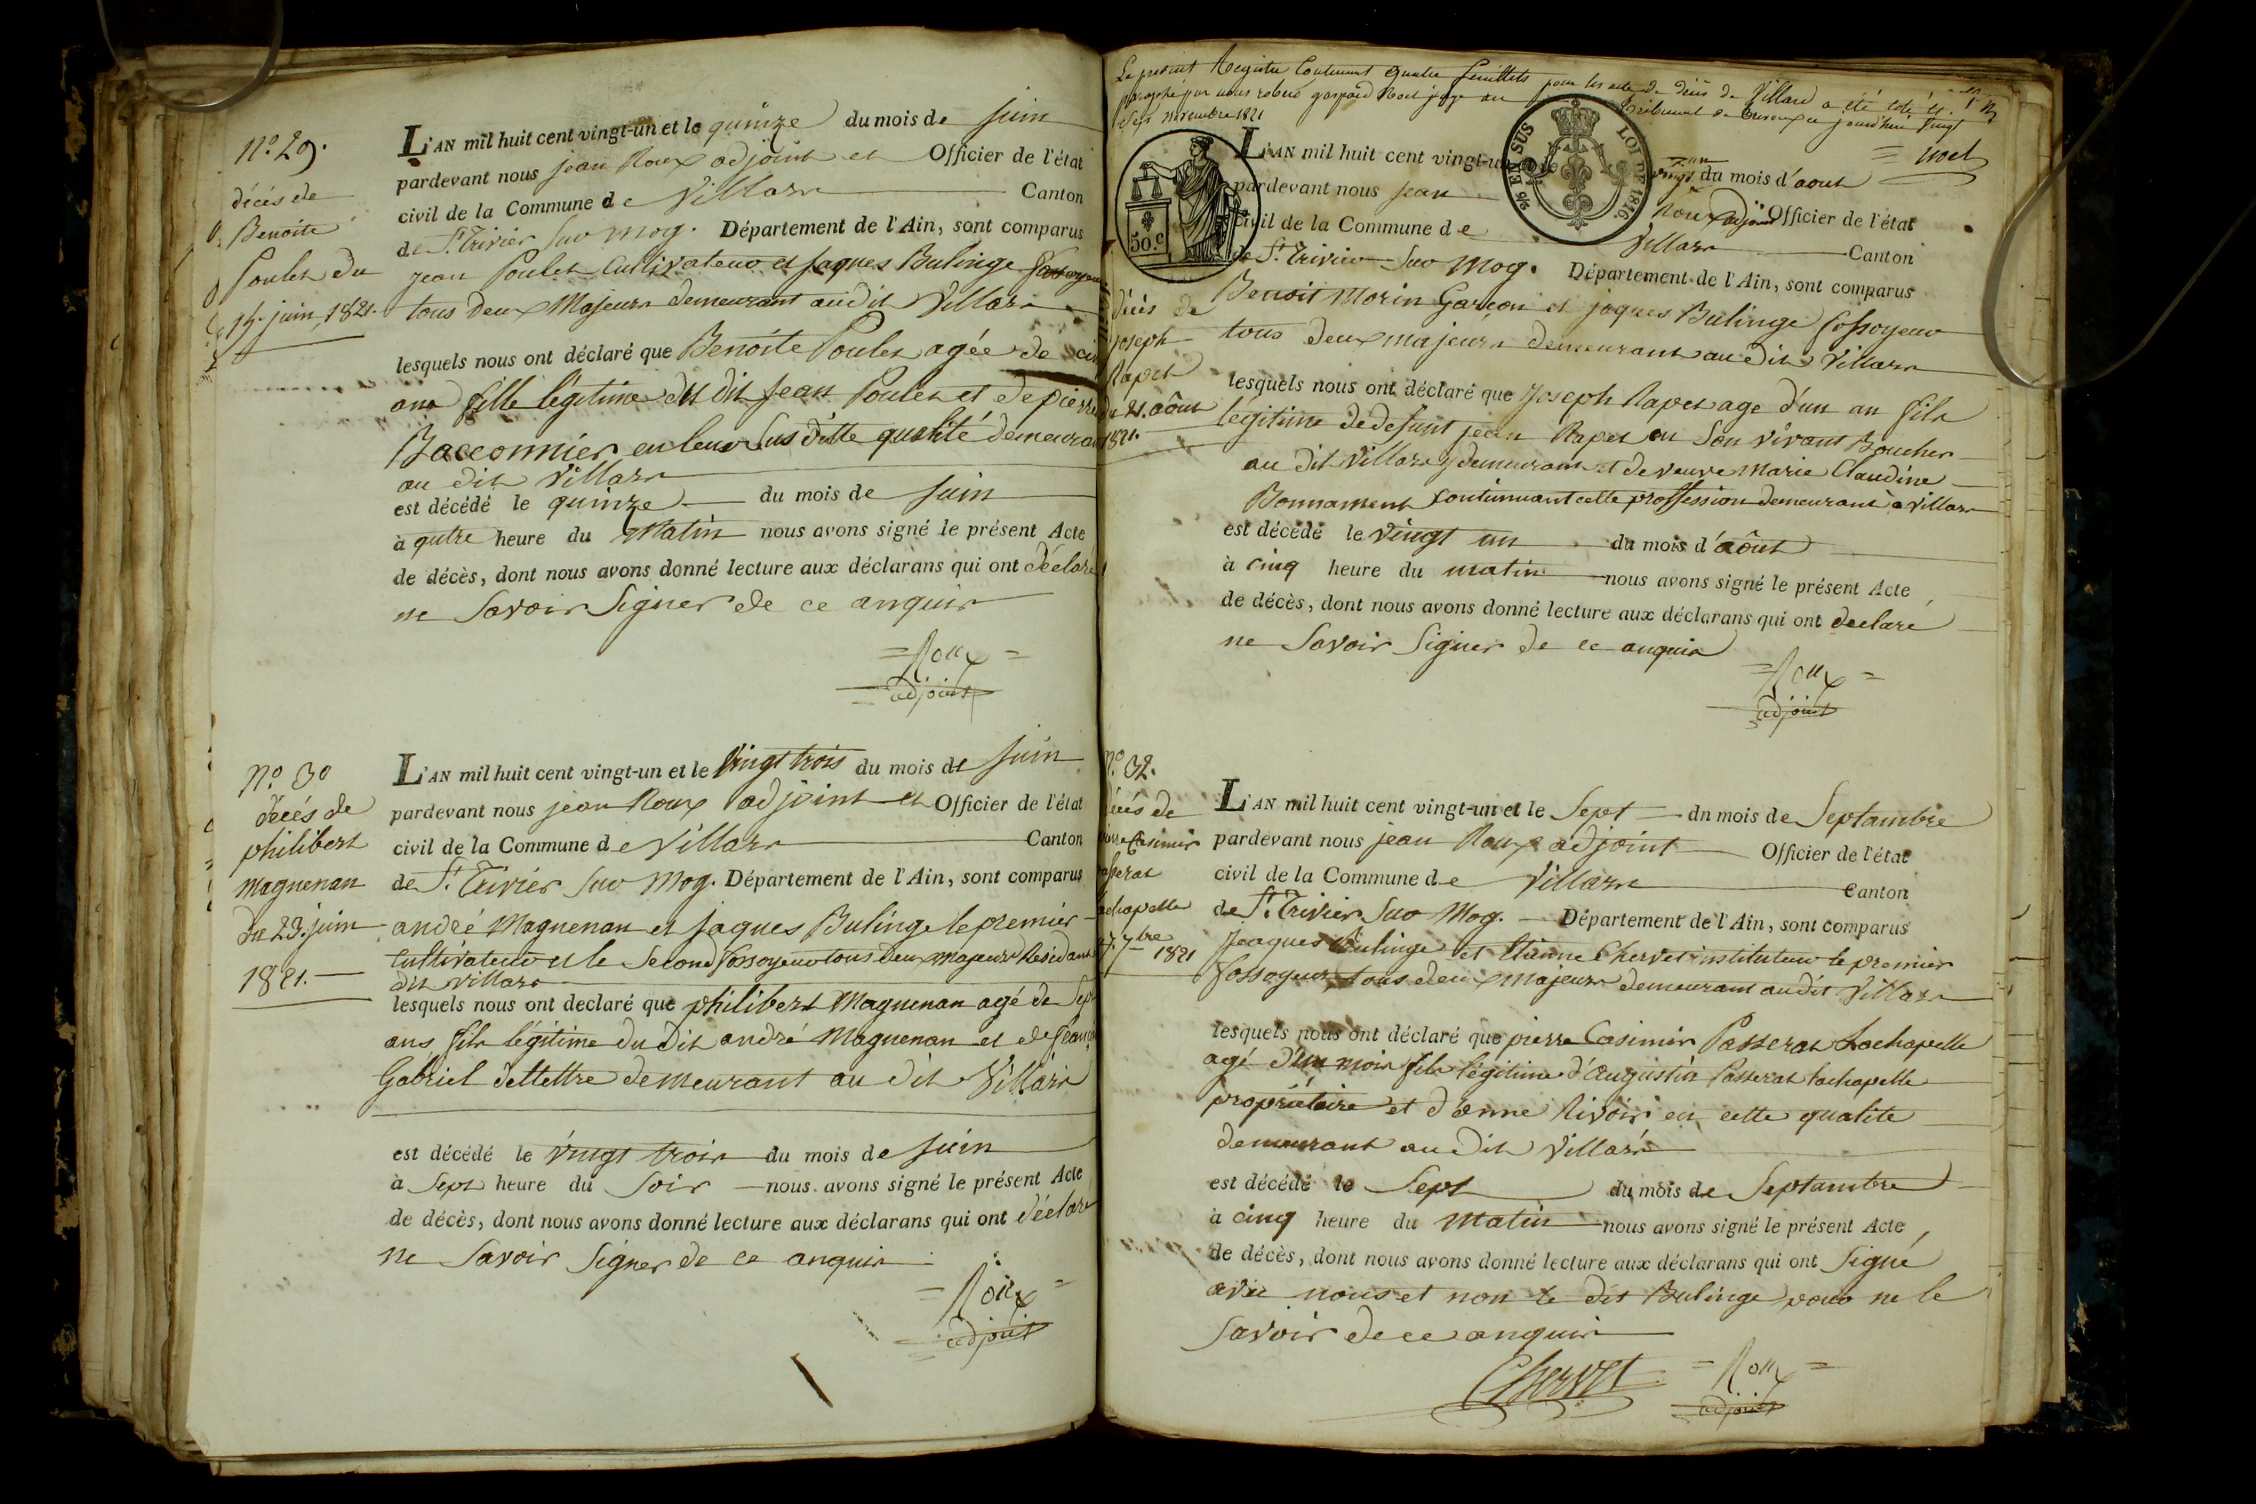 N.o 29.
décés de
Benoite
Poulet du
15. juin 1821.
L'AN mil huit cent vingt-un et le quinze du mois de juin
pardevant nous jean Roux adjoint et Officier de l'état
civil de la Commune de Villars Canton
de St. Trivier Sur Mog. Département de l'Ain, sont comparus
jean Poulet Cultivateur et jaques Bulinge
tous deux Majeurs demeurant au dit Villars
lesquels nous ont déclaré que Benoite Poulet agée de
ans fille légitime du dit jean Poulet et de
Bacconnier en leur Sus ditte qualité
au dit Villars
est décédé le quinze du mois de juin
à qutre heure du Matin nous avons signé le présent Acte
de décès, dont nous avons donné lecture aux déclarans qui ont déclaré
ne Savoir Signer de ce anquis
= Roux =
adjoint
N.o 30
décés de
philibert
Maguenan
du 23. juin
1821.
L'AN mil huit cent vingt-un et le Vingt trois du mois de juin
pardevant nous jean Roux adjoint et Officier de l'état
civil de la Commune de Villars Canton
de St. Trivier Sur Mog. Département de l'Ain, sont comparus
andré Maguenan et jaques Bulinge le premier
Cultivateur et le Second fossoyeur tous deux majeurs
dit Villars
lesquels nous ont declaré que philibert Maguenan agé de
ans fils légitime du dit andré Maguenan et de
Gabriel dellettre demeurant au dit Villars
est décédé le vingt trois du mois de juin
à Sept heure du Soir nous avons signé le présent Acte
de décès, dont nous avons donné lecture aux déclarans qui ont déclaré
ne Savoir Signer de ce anquis
= Roux =
adjoint
Le present Registre Contenant quatre feuillets pour les actes de décès de Villars a été coté et
paraphé par nous gaspard Noel juge au tribunal de Trevoux ce jourd'hui vingt
Sept Novembre 1821
= Noel
50.c
EN SUS
LOI DE 1816
décés de
joseph
Rapet
du 21. aôut
1821.
L'AN mil huit cent vingt-un et le vingt un du mois d'aout
pardevant nous jean Roux adjoint Officier de l'état
civil de la Commune de Villars Canton
de St. Trivier Sur Mog. Département de l'Ain, sont comparus
Benoit Morin Garcon et jaques Bulinge fossoyeur
tous deux majeurs demeurant au dit Villars
lesquels nous ont déclaré que Joseph Rapet age d'un an fils
légitime de defunt jean Rapet en Son vivant Boucher
au dit Villars y demeurant et de veuve Marie Claudine
Bonnament Continuant cette proffession demeurant à Villars
est décédé le vingt un du mois d'aôut
à cinq heure du matin nous avons signé le présent Acte
de décès, dont nous avons donné lecture aux déclarans qui ont declaré
ne Savoir Signer de ce anquis
= Roux =
adjoint
N.o 32.
décés de
Casimir
7. 7bre
1821
L'AN mil huit cent vingt-un et le Sept du mois de Septambre
pardevant nous jean Roux adjoint Officier de l'état
civil de la Commune de Villars Canton
de St. Trivier Sur Mog. Département de l'Ain, sont comparus
Jeaques Bulinge et Etienne Chervet instituteur le premier
fossoyeur tous deux Majeurs demeurant au dit Villars
lesquels nous ont déclaré que pierre Casimir Passerat Lachapelle
agé d'un mois fils légitime d'augustin Passerat lachapelle
propriétaire et d'anne Rivoire en cette qualite
demeurant au dit Villars
est décédé le Sept du mois de Septambre
à cinq heure du Matin nous avons signé le présent Acte
de décès, dont nous avons donné lecture aux déclarans qui ont Signé
avec nous et non le dit Bulinge pour ne le
Savoir de ce anquis
Chervet = Roux =
adjoint